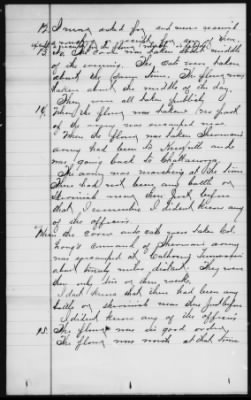 12 I never asked for and never received
13. No. The corn was taken about middle
of the evening. The oats were taken
about the same time. The flour was
taken about the middle of the day.
They were all taken publicly
14. When the flour was taken no part
of the army was encamped near
When the flour was taken Sherman's
army had been to Knoxville and
was going back to Chattanooga.
The army was marching at the time
There had not been any battle or
skirmish near there just before
that I remember. I didnt know any
of the officers.
When the corn and oats was taken Col
Long's command of Sherman's army
was encamped at Calhoun Tennessee
about twenty miles distant. They were
there only two or three weeks.
I dont know that there had been any
battle or skirmish near there just before
I didnt know any of the officers
15. The flour was in good order
The flour was worth at that time